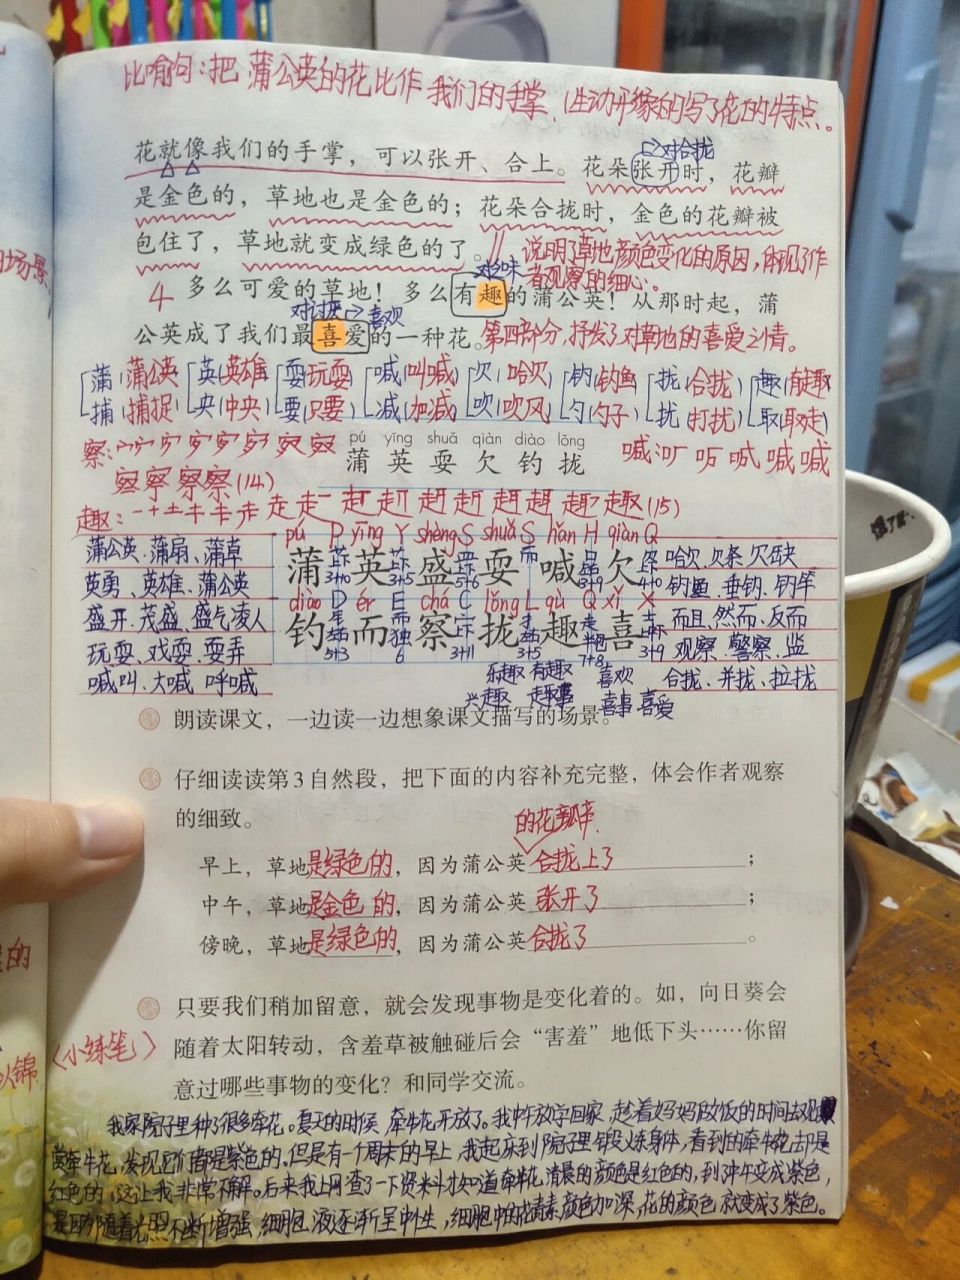 比喻句：把蒲公英的花比作我们的手掌，生动形象的写了花的特点。
花就像我们的手掌，可以张开、合上。花朵张开时，花瓣
对合拢
是金色的，草地也是金色的；花朵合拢时，金色的花瓣被
包住了，草地就变成绿色的了。
说明了草地颜色变化的原因，体现了作
者观察的细心。
4 多么可爱的草地！多么有趣的蒲公英！从那时起，蒲
对讨厌 喜欢
公英成了我们最喜爱的一种花。第四部分，抒发了对草地的喜爱之情。
蒲（蒲公英 英（英雄 耍（玩耍 喊（叫喊） 欠（哈欠 钓（钓鱼 拢（合拢） 趣（有趣
捕（捕捉 央（中央） 要（只要 减（加减 吹（吹风 勺（勺子 扰（打扰 取（取走）
pú yīng shuǎ qiàn diào lǒng
蒲英耍欠钓拢
察：
喊：
(14)
趣： (15)
pú P yīng Y shèng S shuǎ S hǎn H qiàn Q
蒲公英、蒲扇、蒲草
蒲 英 盛 耍 喊 欠
3+10 3+5 5+6 3+9 4+0
哈欠、欠条、欠缺
英勇、英雄、蒲公英
钓鱼、垂钓、钓竿
diào D ér E chá C lǒng L qù Q xǐ X
盛开、茂盛、盛气凌人
钓 而 察 拢 趣 喜
5+3 6 3+11 3+5 7+8 3+9
而且、然而、反而
玩耍、戏耍、耍弄
观察、警察、监
喊叫、大喊、呼喊
乐趣 有趣 喜欢
合拢、并拢、拉拢
兴趣 趣事 喜事 喜爱
朗读课文，一边读一边想象课文描写的场景。
仔细读读第3自然段，把下面的内容补充完整，体会作者观察
的细致。
的花瓣
早上，草地是绿色的，因为蒲公英合拢上了；
中午，草地是金色的，因为蒲公英张开了；
傍晚，草地是绿色的，因为蒲公英合拢了。
只要我们稍加留意，就会发现事物是变化着的。如，向日葵会
〈小练笔〉
随着太阳转动，含羞草被触碰后会“害羞”地低下头……你留
意过哪些事物的变化？和同学交流。
我家院子里种了很多牵花。夏天的时候，牵牛花开放了。我中午放学回家，趁着妈妈做饭的时间去观
赏牵牛花，发现它们都是紫色的。但是有一个周末的早上，我起床到院子里锻炼身体，看到的牵牛花却是
红色的，这让我非常不解。后来我上网查了一下资料才知道牵牛花清晨的颜色是红色的，到中午变成紫色，
是因为随着光照不断增强，细胞液逐渐呈中性，细胞中的花青素颜色加深，花的颜色就变成了紫色。
场景
的
以锦